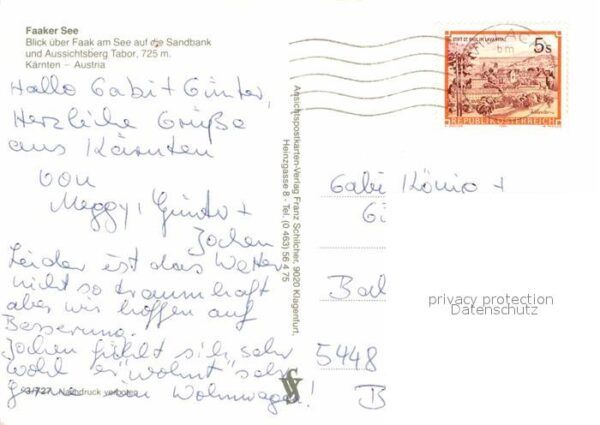 Faaker See
Blick über Faak am See auf die Sandbank
und Aussichtsberg Tabor, 725 m.
Kärnten – Austria
Hallo Gabi + Günter,
Herzliche Grüße
aus Kärnten
von
Meggy, Günter +
Jochen
Leider ist das Wetter
nicht so traumhaft
aber wir hoffen auf
Besserung.
Jochen fühlt sich sehr
wohl er "wohnt" sehr
gerne im Wohnwagen!
3/727 Nachdruck verboten
Ansichtspostkarten-Verlag Franz Schilcher, 9020 Klagenfurt,
Heinzgasse 8 - Tel. (0 463) 56 4 75
STIFT ST. PAUL IM LAVANTTAL
5s
REPUBLIK ÖSTERREICH
Gabi König +
Gi
Bad
privacy protection
Datenschutz
5448
B